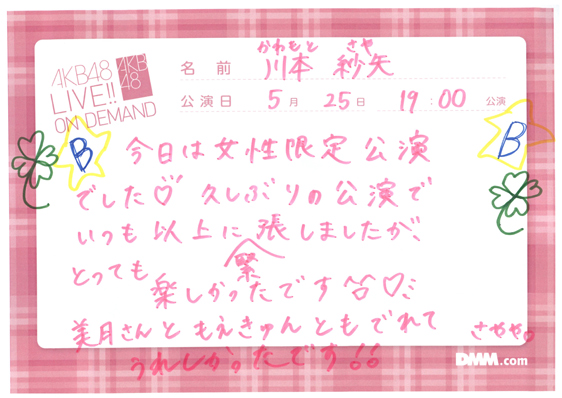 AKB48
LIVE!!
ON DEMAND
AKB
48
かわもと さや
名前 川本 紗矢
公演日 5月 25日 19:00 公演
B
B
今日は女性限定公演
でした♡ 久しぶりの公演で
いつも以上に張しましたが、
緊
とっても
楽しかったです
美月さんともえきゅんともでれて
うれしかったです!!
さやや。
DMM.com